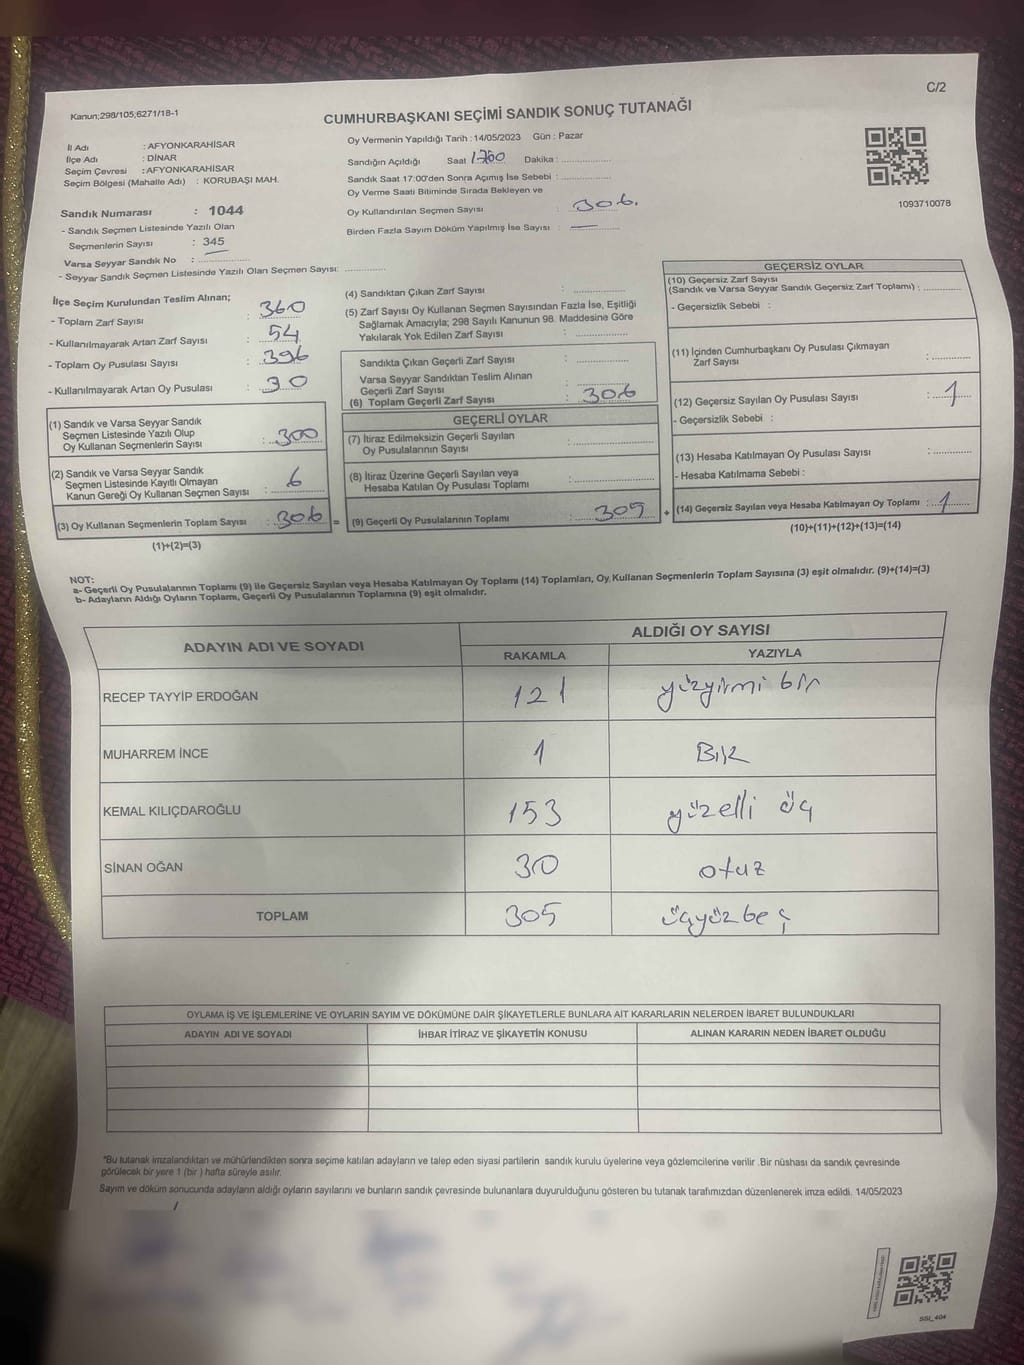 C/2
Kanun;298/105,6271/18-1
CUMHURBAŞKANI SEÇİMİ SANDIK SONUÇ TUTANAĞI
İl Adı : AFYONKARAHİSAR
İlçe Adı : DİNAR
Seçim Çevresi : AFYONKARAHİSAR
Seçim Bölgesi (Mahalle Adı) : KORUBAŞI MAH.
Sandık Numarası : 1044
- Sandık Seçmen Listesinde Yazılı Olan
Seçmenlerin Sayısı : 345
Varsa Seyyar Sandık No : ................
- Seyyar Sandık Seçmen Listesinde Yazılı Olan Seçmen Sayısı: .............
Oy Vermenin Yapıldığı Tarih : 14/05/2023 Gün : Pazar
Sandığın Açıldığı Saat 1700 Dakika : ................
Sandık Saat 17:00'den Sonra Açımış İse Sebebi : ................
Oy Verme Saati Bitiminde Sırada Bekleyen ve
Oy Kullandırılan Seçmen Sayısı : 306.
Birden Fazla Sayım Döküm Yapılmış İse Sayısı : —
1093710078
İlçe Seçim Kurulundan Teslim Alınan;
- Toplam Zarf Sayısı : 360
- Kullanılmayarak Artan Zarf Sayısı : 54
- Toplam Oy Pusulası Sayısı : 396
- Kullanılmayarak Artan Oy Pusulası : 90
(1) Sandık ve Varsa Seyyar Sandık
Seçmen Listesinde Yazılı Olup
Oy Kullanan Seçmenlerin Sayısı : 300
(2) Sandık ve Varsa Seyyar Sandık
Seçmen Listesinde Kayıtlı Olmayan
Kanun Gereği Oy Kullanan Seçmen Sayısı : 6
(3) Oy Kullanan Seçmenlerin Toplam Sayısı : 306 =
(1)+(2)=(3)
(4) Sandıktan Çıkan Zarf Sayısı : ................
(5) Zarf Sayısı Oy Kullanan Seçmen Sayısından Fazla İse, Eşitliği
Sağlamak Amacıyla; 298 Sayılı Kanunun 98. Maddesine Göre
Yakılarak Yok Edilen Zarf Sayısı : ................
Sandıkta Çıkan Geçerli Zarf Sayısı : ................
Varsa Seyyar Sandıktan Teslim Alınan
Geçerli Zarf Sayısı : ................
(6) Toplam Geçerli Zarf Sayısı : 306
GEÇERLİ OYLAR
(7) İtiraz Edilmeksizin Geçerli Sayılan
Oy Pusulalarının Sayısı : ................
(8) İtiraz Üzerine Geçerli Sayılan veya
Hesaba Katılan Oy Pusulası Toplamı : ................
(9) Geçerli Oy Pusulalarının Toplamı : 305 +
GEÇERSİZ OYLAR
(10) Geçersiz Zarf Sayısı
(Sandık ve Varsa Seyyar Sandık Geçersiz Zarf Toplamı) : .............
- Geçersizlik Sebebi :
(11) İçinden Cumhurbaşkanı Oy Pusulası Çıkmayan
Zarf Sayısı : .............
(12) Geçersiz Sayılan Oy Pusulası Sayısı : 1
- Geçersizlik Sebebi :
(13) Hesaba Katılmayan Oy Pusulası Sayısı : .............
- Hesaba Katılmama Sebebi :
(14) Geçersiz Sayılan veya Hesaba Katılmayan Oy Toplamı : 1
(10)+(11)+(12)+(13)=(14)
NOT:
a- Geçerli Oy Pusulalarının Toplamı (9) ile Geçersiz Sayılan veya Hesaba Katılmayan Oy Toplamı (14) Toplamları, Oy Kullanan Seçmenlerin Toplam Sayısına (3) eşit olmalıdır. (9)+(14)=(3)
b- Adayların Aldığı Oyların Toplamı, Geçerli Oy Pusulalarının Toplamına (9) eşit olmalıdır.
ADAYIN ADI VE SOYADI ALDIĞI OY SAYISI
RAKAMLA YAZIYLA
RECEP TAYYİP ERDOĞAN 121 yüzyirmi bir
MUHARREM İNCE 1 BİR
KEMAL KILIÇDAROĞLU 153 yüzelli üç
SİNAN OĞAN 30 otuz
TOPLAM 305 üçyüzbeş
OYLAMA İŞ VE İŞLEMLERİNE VE OYLARIN SAYIM VE DÖKÜMÜNE DAİR ŞİKAYETLERLE BUNLARA AİT KARARLARIN NELERDEN İBARET BULUNDUKLARI
ADAYIN ADI VE SOYADI İHBAR İTİRAZ VE ŞİKAYETİN KONUSU ALINAN KARARIN NEDEN İBARET OLDUĞU
*Bu tutanak imzalandıktan ve mühürlendikten sonra seçime katılan adayların ve talep eden siyasi partilerin sandık kurulu üyelerine veya gözlemcilerine verilir .Bir nüshası da sandık çevresinde
görülecek bir yere 1 (bir ) hafta süreyle asılır.
Sayım ve döküm sonucunda adayların aldığı oyların sayılarını ve bunların sandık çevresinde bulunanlara duyurulduğunu gösteren bu tutanak tarafımızdan düzenlenerek imza edildi. 14/05/2023
SSI_404